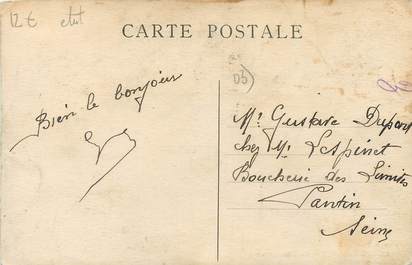 12 €
CARTE POSTALE
(05)
Bien le bonjour
Mr Gustave Dupont
chez Mr Lespinet
Boucherie des Limites
Pantin
Seine